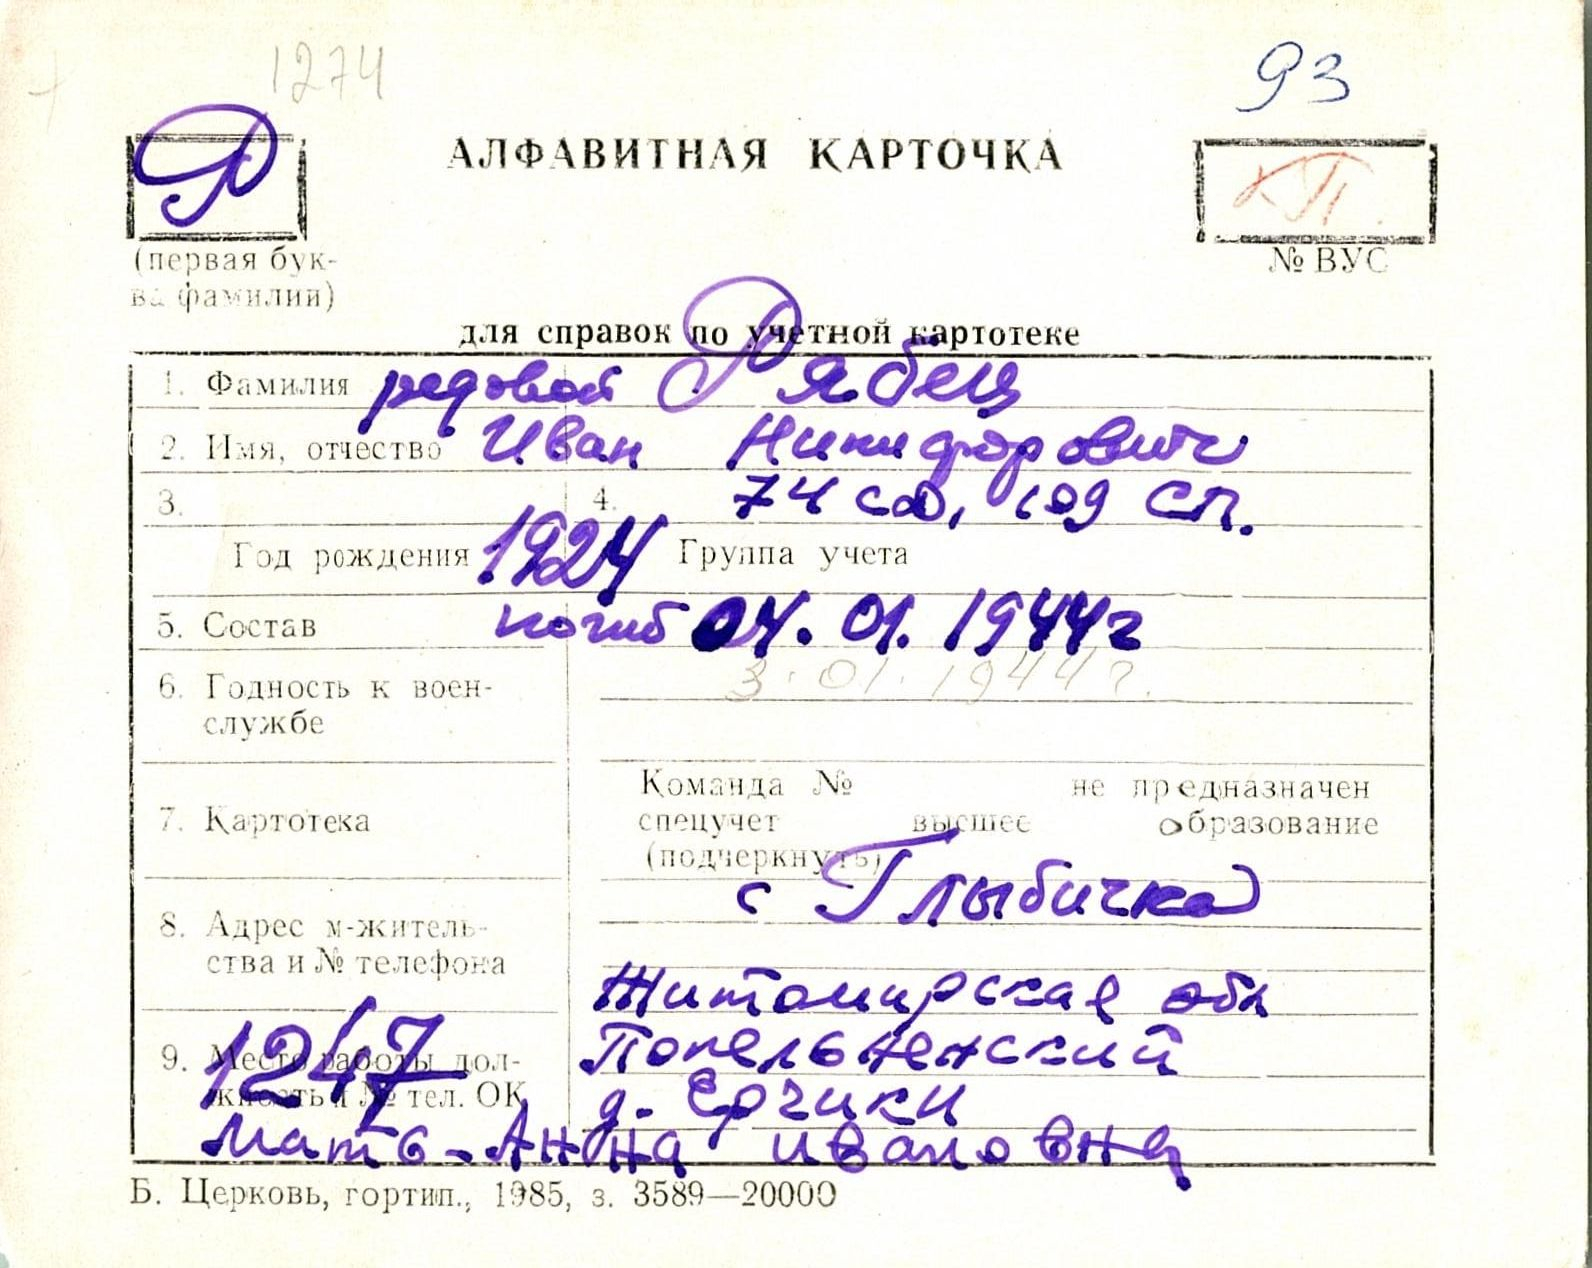 1274
93
Р
АЛФАВИТНАЯ КАРТОЧКА
КП.
(первая бук-
ва фамилии)
№ ВУС
для справок по учетной картотеке
1. Фамилия рядовой Рябец
2. Имя, отчество Иван Никифорович
3. 4. 74 сд, 109 сп.
Год рождения 1924 Группа учета
5. Состав погиб 04.01.1944г
3.01.1944г.
6. Годность к воен-
службе
Команда № не предназначен
7. Картотека спецучет высшее образование
(подчеркнуть)
с Глыбичка
8. Адрес м-житель-
ства и № телефона
Житомирская обл
9. Место работы дол- Попельненский
жность и № тел. ОК д. Ерчики
1247
мать - Анна Ивановна
Б. Церковь, гортип., 1985, з. 3589—20000